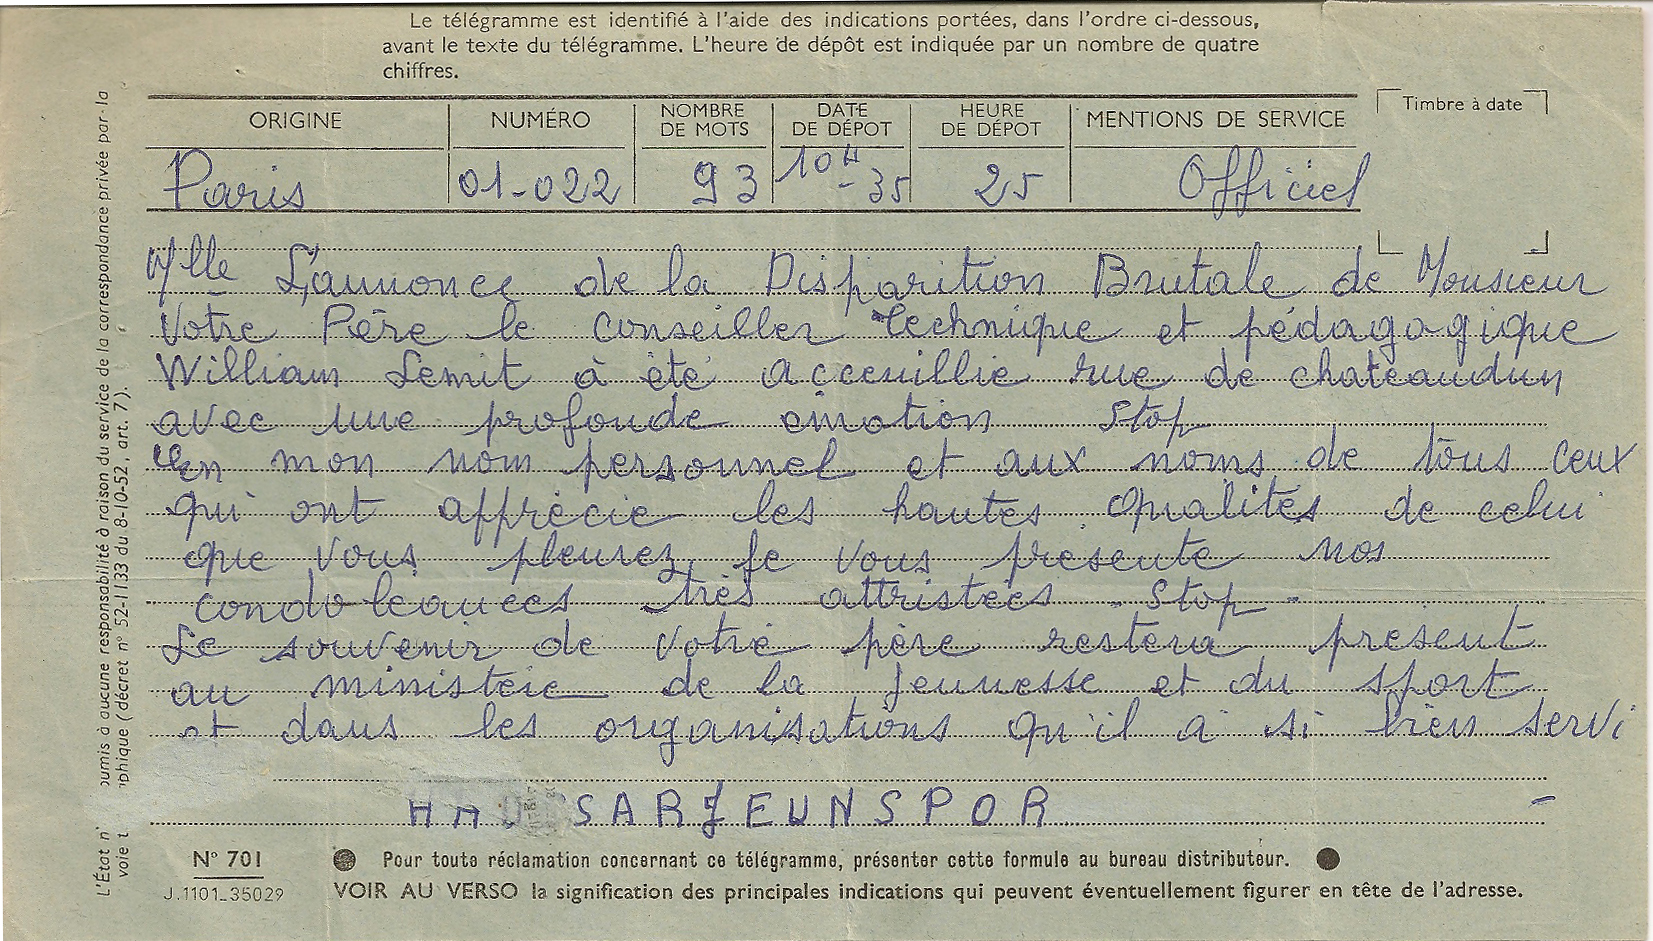 Le télégramme est identifié à l'aide des indications portées, dans l'ordre ci-dessous,
avant le texte du télégramme. L'heure de dépôt est indiquée par un nombre de quatre
chiffres.
ORIGINE NUMÉRO NOMBRE DE MOTS DATE DE DÉPOT HEURE DE DÉPOT MENTIONS DE SERVICE Timbre à date
Paris 01-022 93 10H-35 25 Officiel
Mlle L'annonce de la Disparition Brutale de Monsieur
Votre Père le Conseiller technique et pédagogique
William Lemit à été acceuillie rue de chateaudun
avec une profonde émotion Stop
En mon nom personnel et aux noms de tous ceux
qui ont apprécie les hautes Qualités de celui
que vous pleurez je vous presente nos
condoleances très attristées - Stop -
Le souvenir de votre père restera present
au ministère de la Jeunesse et du sport
et dans les organisations qu'il a si bien servi
SARJEUNSPOR
N° 701
J.1101_35029
Pour toute réclamation concernant ce télégramme, présenter cette formule au bureau distributeur.
VOIR AU VERSO la signification des principales indications qui peuvent éventuellement figurer en tête de l'adresse.
L'État n' oumis à aucune responsabilité à raison du service de la correspondance privée par la
voie t phique (décret n° 52-1133 du 8-10-52, art. 7).